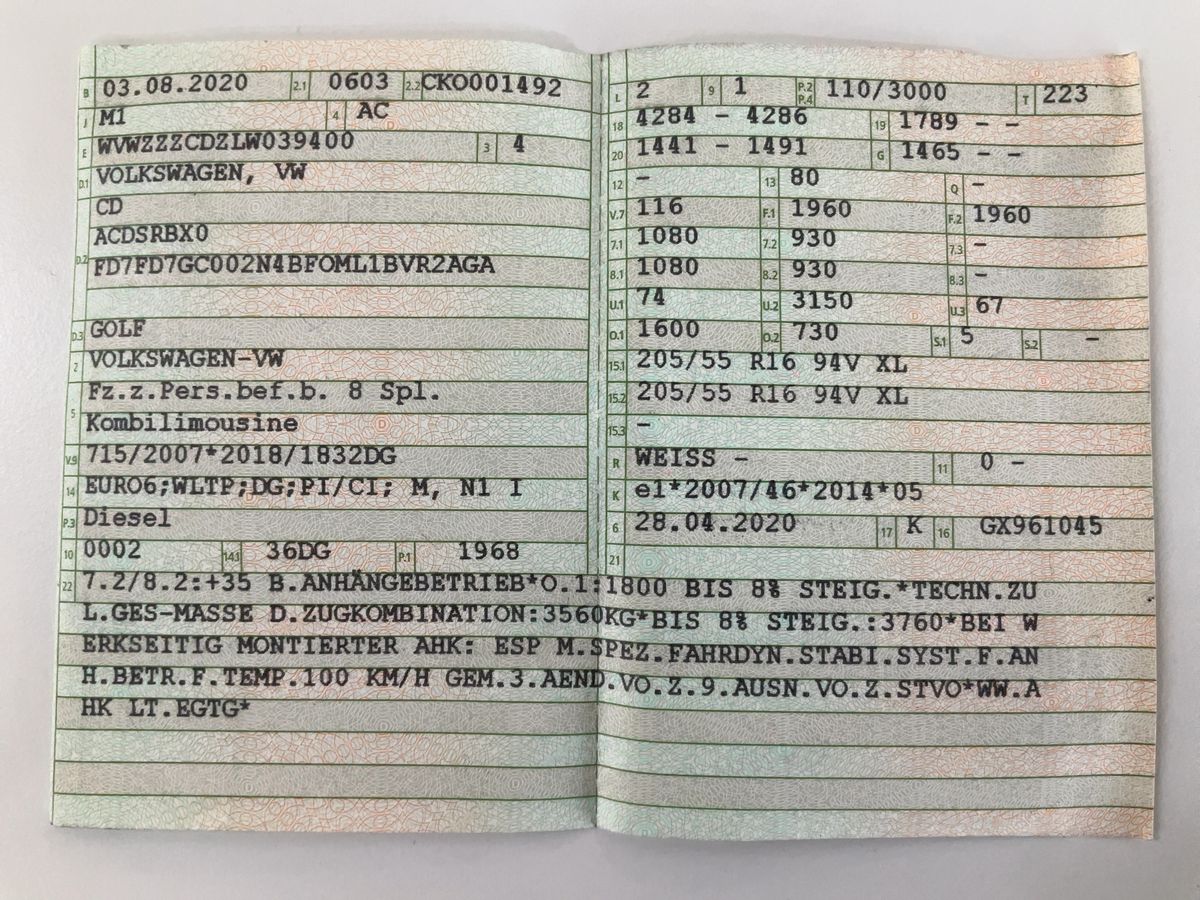 B 03.08.2020 2.1 0603 2.2 CKO001492
J M1 4 AC
E WVWZZZCDZLW039400 3 4
D.1 VOLKSWAGEN, VW
CD
ACDSRBX0
D.2 FD7FD7GC002N4BFOML1BVR2AGA
D.3 GOLF
2 VOLKSWAGEN-VW
5 Fz.z.Pers.bef.b. 8 Spl.
Kombilimousine
V.9 715/2007*2018/1832DG
14 EURO6;WLTP;DG;PI/CI; M, N1 I
P.3 Diesel
10 0002 14.1 36DG P.1 1968
L 2 9 1 P.2 P.4 110/3000 T 223
18 4284 - 4286 19 1789 - -
20 1441 - 1491 G 1465 - -
12 - 13 80 Q -
V.7 116 F.1 1960 F.2 1960
7.1 1080 7.2 930 7.3 -
8.1 1080 8.2 930 8.3 -
U.1 74 U.2 3150 U.3 67
O.1 1600 O.2 730 S.1 5 S.2 -
15.1 205/55 R16 94V XL
15.2 205/55 R16 94V XL
15.3 -
R WEISS - 11 0 -
K e1*2007/46*2014*05
6 28.04.2020 17 K 16 GX961045
21
22 7.2/8.2:+35 B.ANHÄNGEBETRIEB*O.1:1800 BIS 8% STEIG.*TECHN.ZU
L.GES-MASSE D.ZUGKOMBINATION:3560KG*BIS 8% STEIG.:3760*BEI W
ERKSEITIG MONTIERTER AHK: ESP M.SPEZ.FAHRDYN.STABI.SYST.F.AN
H.BETR.F.TEMP.100 KM/H GEM.3.AEND.VO.Z.9.AUSN.VO.Z.STVO*WW.A
HK LT.EGTG*